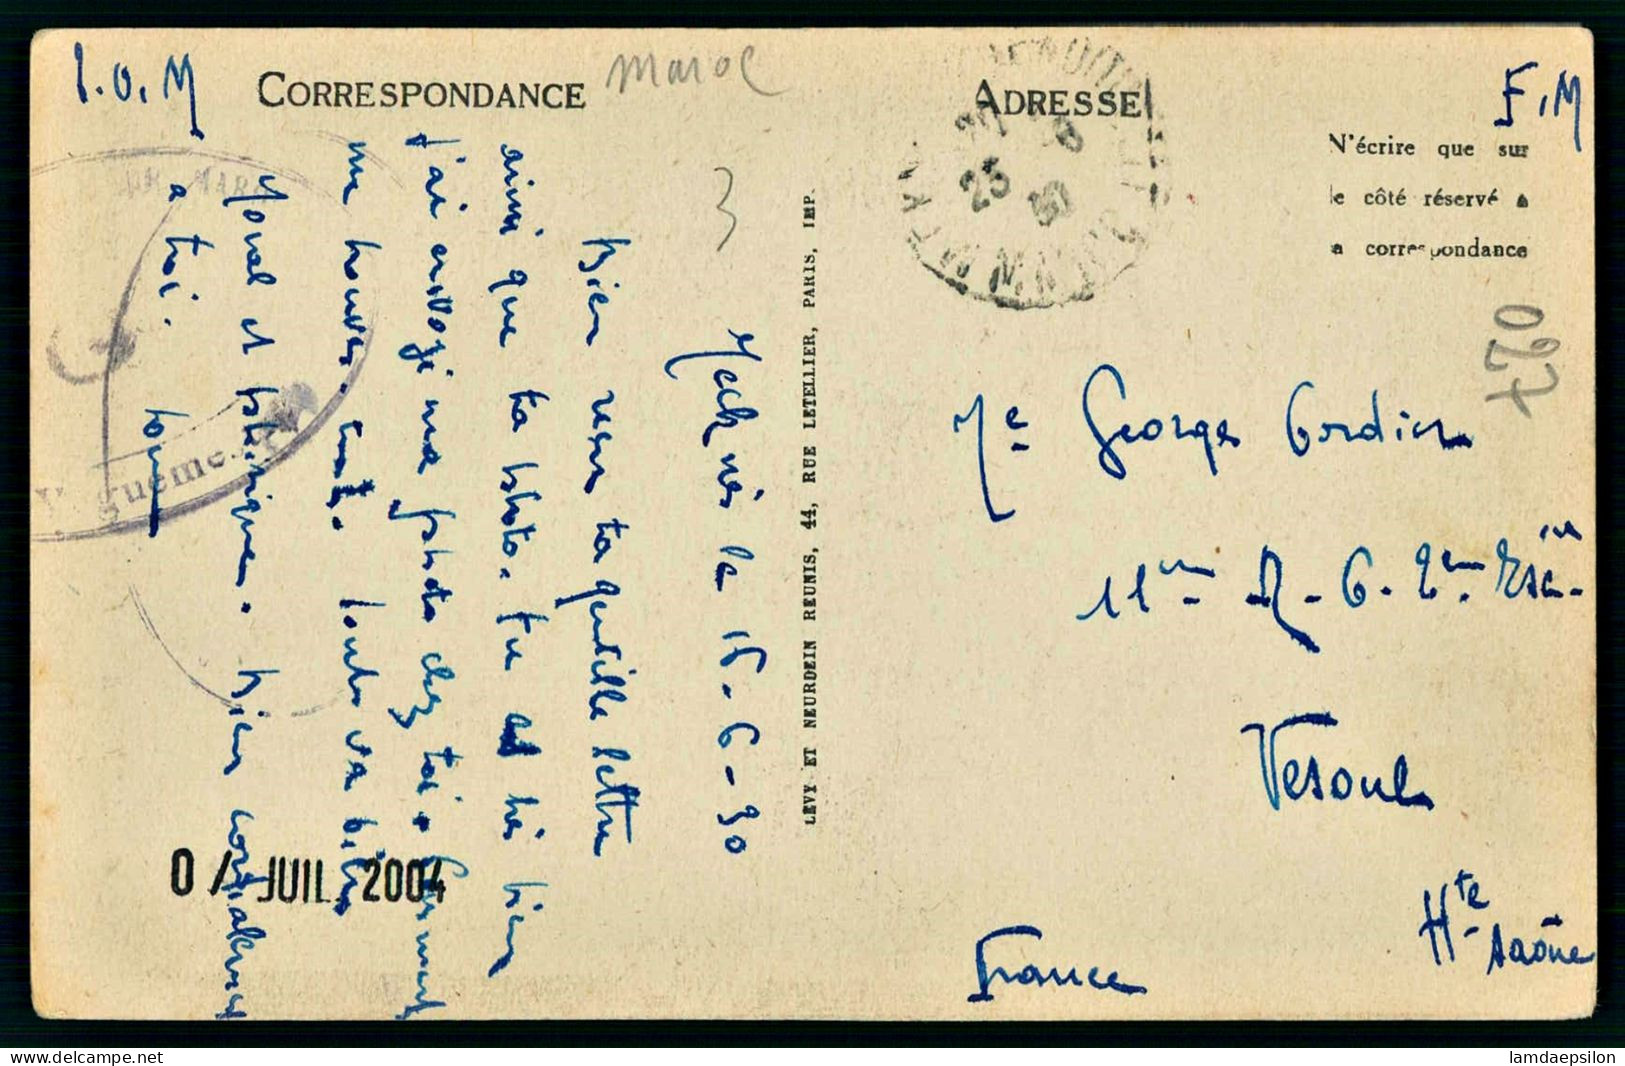 I.O.M
CORRESPONDANCE
Maroc
ADRESSE
F.M
N'écrire que sur
le côté réservé à
la correspondance
067
3
Meknès le 15-6-30
Bien reçu ta gentille lettre
ainsi que ta photo. Tu es très bien
j'ai envoyé ma photo chez toi. Comment
me trouves. Toute va bien
Moral et physique. Bien cordialement
à toi.
Vaguemes
LÉVY ET NEURDEIN RÉUNIS, 44, RUE LETELLIER, PARIS, IMP.
Me Georges Cordier
11ème R. G. 2ème Esc.
Vesoul
Hte Saône
France
0/ JUIL. 2004
delcampe.net
lamdaepsilon